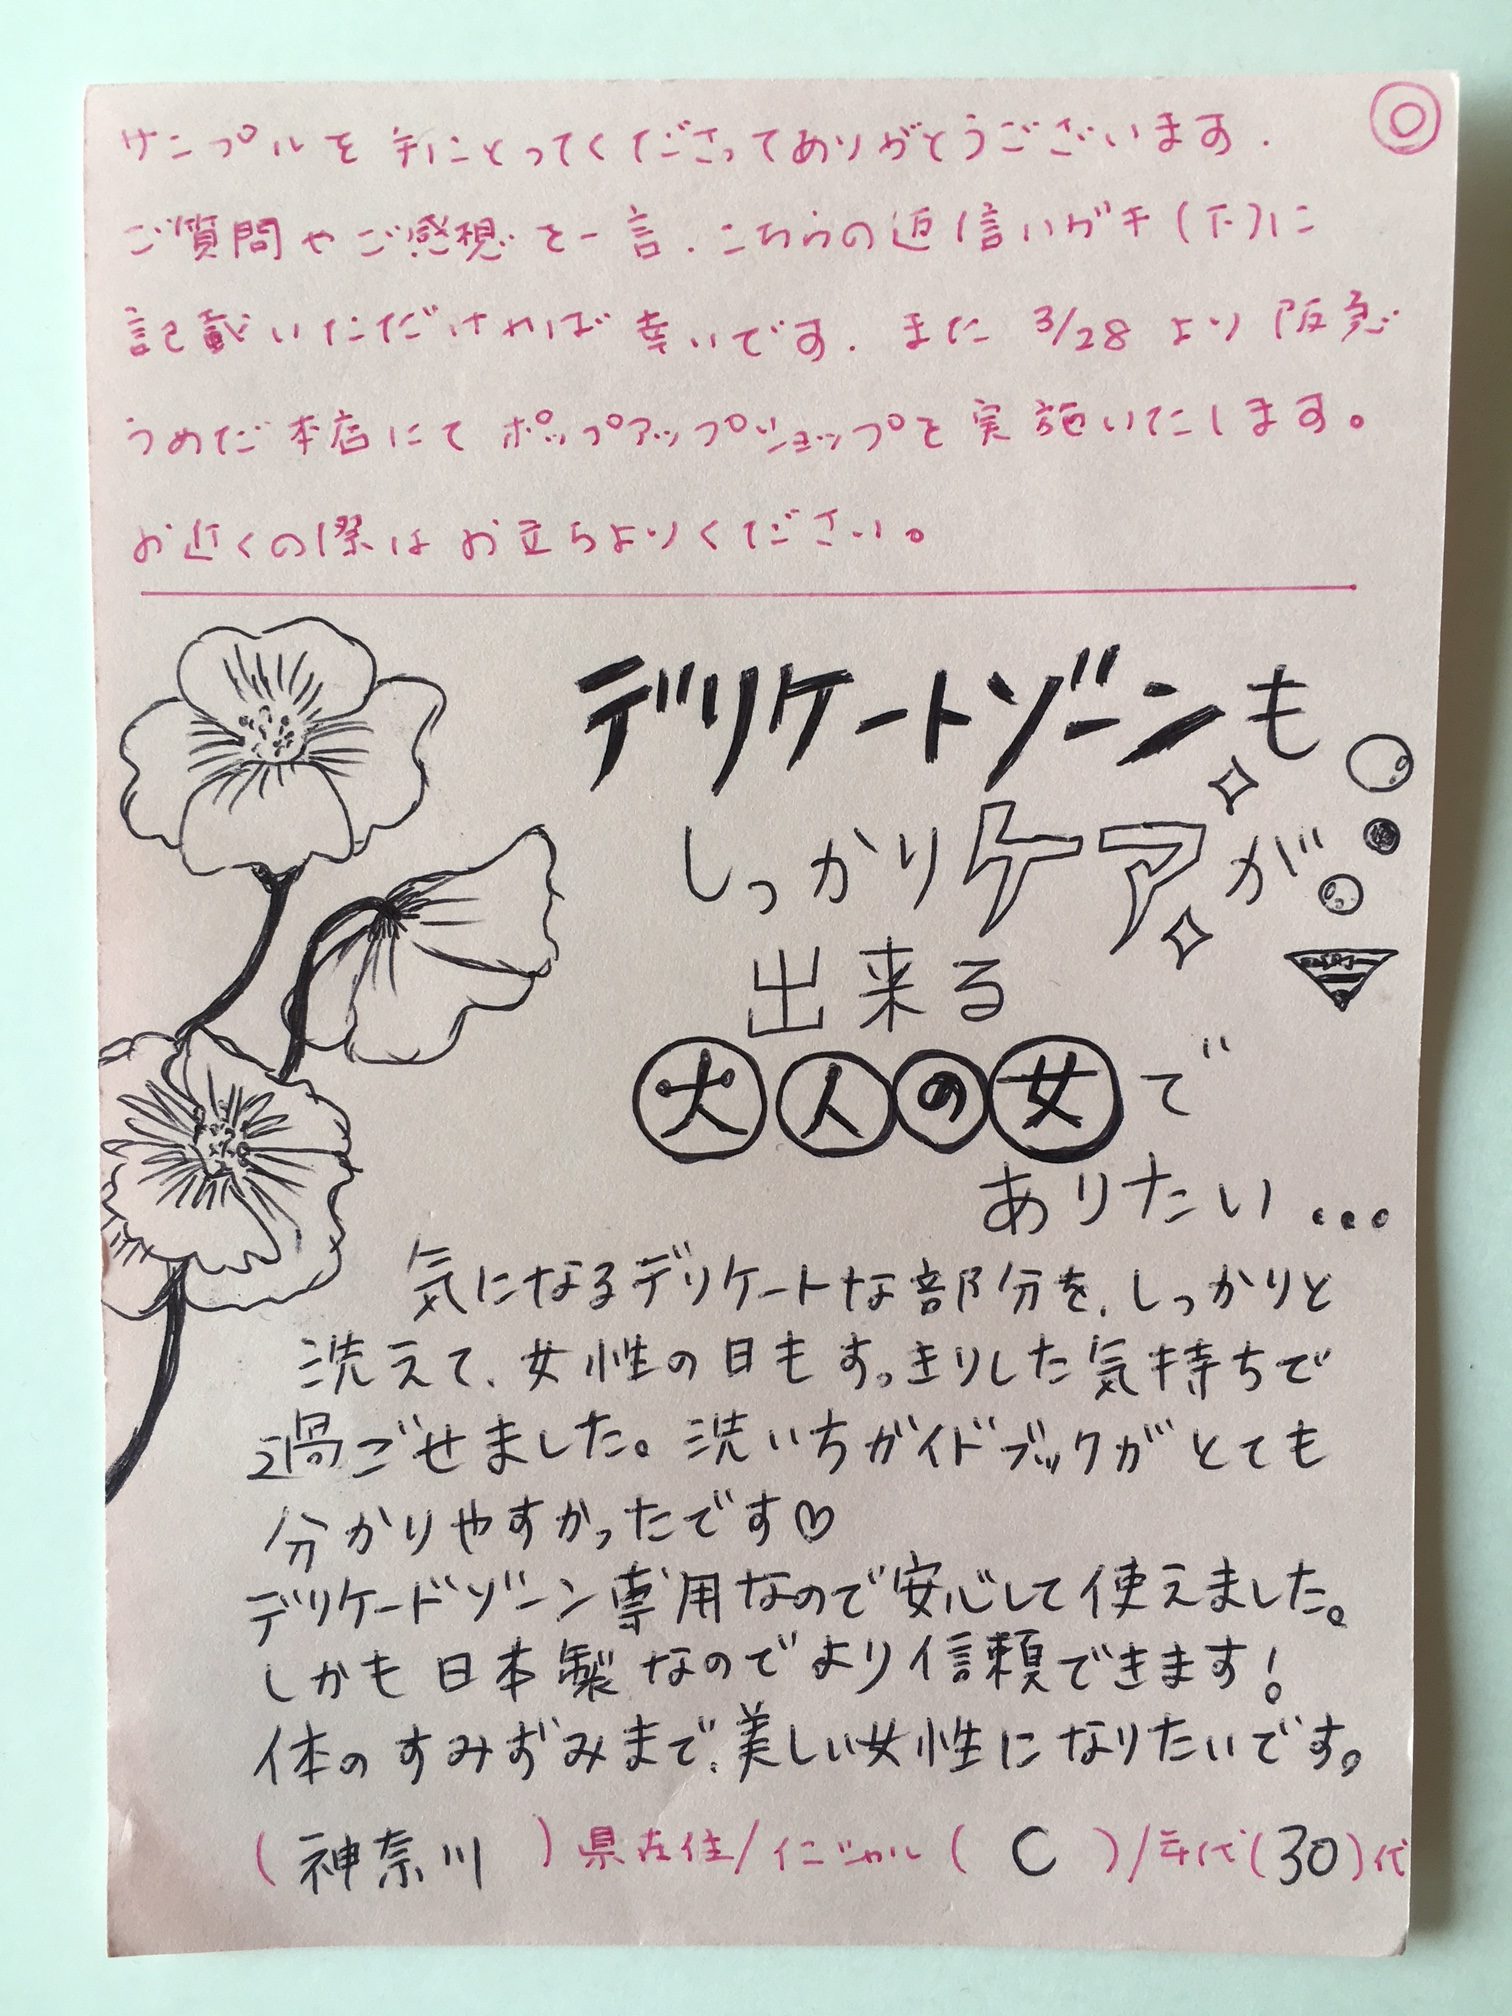 サンプルを手にとってくださってありがとうございます.
ご質問やご感想を一言、こちらの返信ハガキ(下)に
記載いただければ幸いです. また 3/28 より 阪急
うめだ本店にて ポップアップショップを実施いたします。
お近くの際はお立ちよりください。
デリケートゾーンも
しっかりケアが
出来る
大人の女で
ありたい...
気になるデリケートな部分を、しっかりと
洗えて、女性の日もすっきりした気持ちで
過ごせました。洗い方ガイドブックがとても
分かりやすかったです♡
デリケードゾーン専用なので安心して使えました。
しかも日本製なのでより信頼できます!
体のすみずみまで、美しい女性になりたいです。
( 神奈川 ) 県在住/イニシャル( C )/年代(30)代